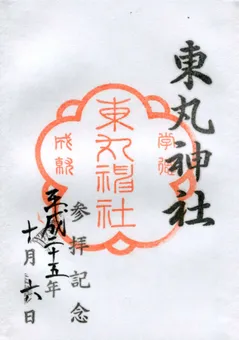 東丸神社
学業
東丸神社
成就
参拝記念
平成二十五年
十月六日